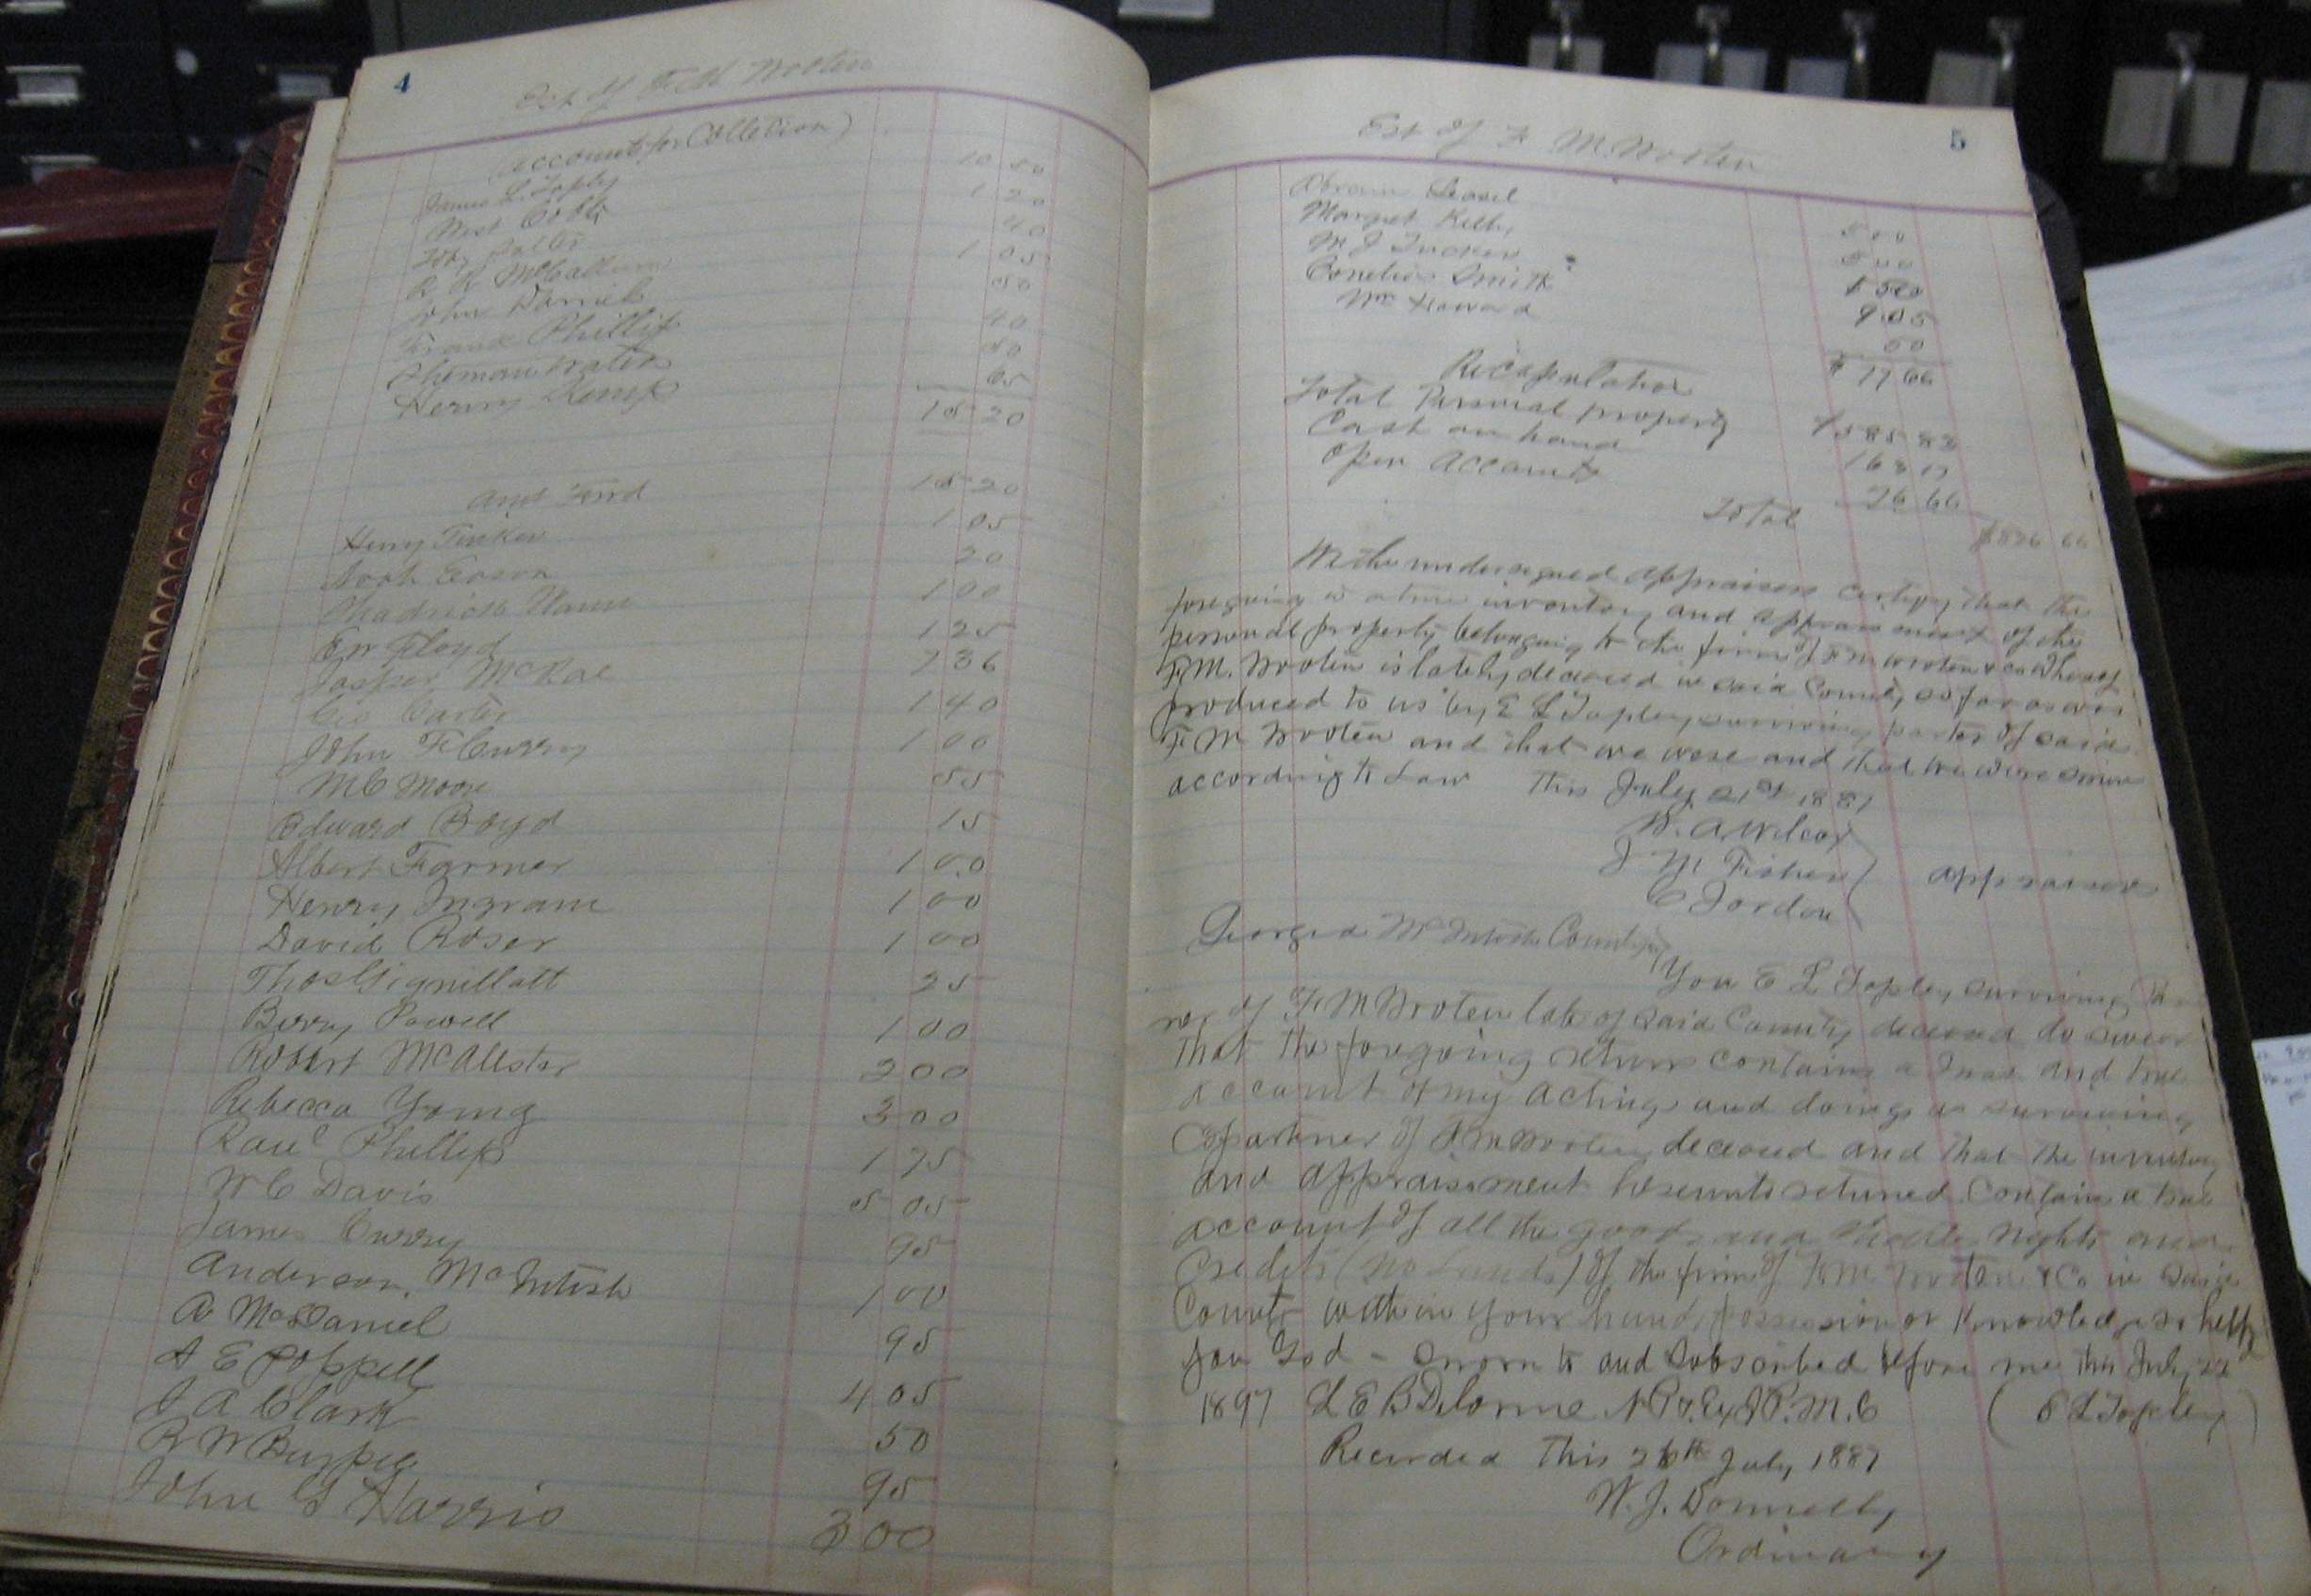 4
Est of F M Wooten
(Accounts for Collection)
James L. Tapley 10 50
West 1 20
Potter 40
R R McCallum 1 05
John Daniel 50
Frank Phillips 40
Sherman Wooten 50
Henry Kemp 65
15 20
and Ford 15 20
Henry Tucker 1 05
Noah Eason 20
Shadrick 1 00
E W Floyd 1 25
Jasper McRae 7 36
Geo Carter 1 40
John F Curry 1 00
M C Moore 55
Edward Boyd 15
Albert Farmer 1 00
Henry Ingram 1 00
David Roser 1 00
Thos Gignillatt 25
Berry Powell 1 00
Robert McAlister 2 00
Rebecca Young 3 00
Phillips 1 75
W C Davis 5 05
James Curry 95
Anderson, McIntosh 1 00
A McDaniel 95
A E Poppell 4 05
J A Clark 50
R W Burpee 95
John G Harris 3 00
5
Est of F M. Wooten
Abram
Margret Kelly 5 00
M J Tucker 5 00
Cornelius Smith
Mr Howard 50
Recapulation
Total Personal property $585 83
Cash on hand
Open Accounts 76 66
Total
We the undersigned appraisers certify that the
foregoing is a true inventory and appraisment of the
personal property belonging to the firm of F M Wooten & co Whereof
F. M. Wooten is lately deceased in said County so far as was
produced to us by E L Tapley surviving parter of said
F M Wooten and that we were and that we were sworn
according to Law This July 21st 1887
W. A Wilcox
J M Fisher
C Jordan
appraisers
Georgia McIntosh County
You E L Tapley surviving
of F M Wooten late of said County deceased do swear
That the foregoing return contains a Just and true
account of my actings and doings as surviving
Copartner of F M Wooten deceased and that the inventory
and appraisement hereunto returned contains a true
account of all the goods and rights and
Credits (No Lands) of the firm of F M Wooten & Co in said
County within your hands possession or Knowledge so help
you God - Sworn to and subscribed before me this July 22d
1897 L E B DeLorme N P & Ex J. P. M. C (E L Tapley)
Recorded This 26th July 1887
W. J. Donnelly
Ordinary